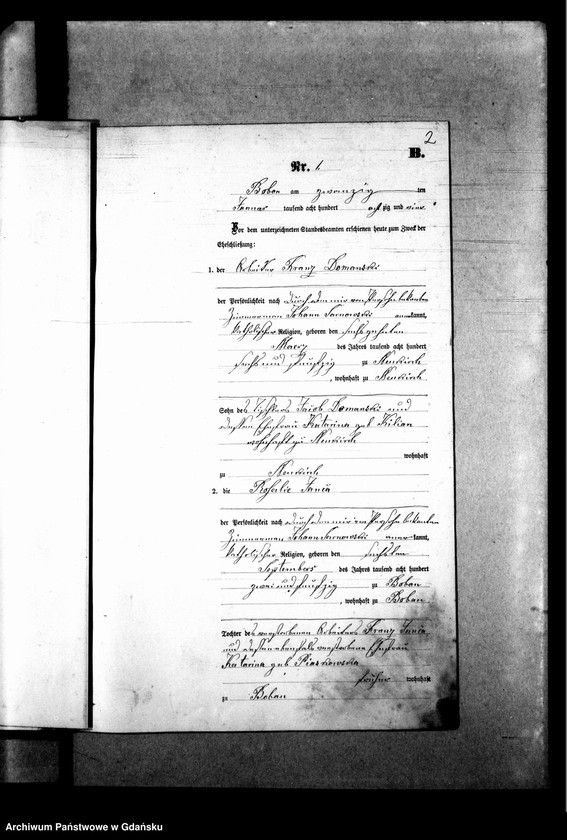 2
B.
Nr. 1.
Boban am zwanzig ten
Januar tausend acht hundert achtzig und vier.
Vor dem unterzeichneten Standesbeamten erschienen heute zum Zweck der
Eheschließung:
1. der Arbeiter Franz Domanski
der Persönlichkeit nach durch den mir von Person bekanten
Zimmerman Johann Tarnowski anerkannt,
katholischer Religion, geboren den sechszehnten
Maerz des Jahres tausend acht hundert
sechs und fünfzig zu Neukirch
, wohnhaft zu Neukirch
Sohn des Jacob Domanski und
dessen Ehefrau Katarina geb Kilian
wohnhaft zu Neukirch
wohnhaft
zu Neukirch
2. die Rosalie Jania
der Persönlichkeit nach durch den mir von Person bekanten
Zimmerman Johann Tarnowski anerkannt,
katholischer Religion, geboren den sechsten
Septembers des Jahres tausend acht hundert
zwei und fünfzig zu Boban
, wohnhaft zu Boban
Tochter des verstorbenen Arbeiters Franz Jania
und dessen ebenfals verstorbene Ehefrau
Katarina geb Piaskowska
früher wohnhaft
zu Boban
Archiwum Państwowe w Gdańsku